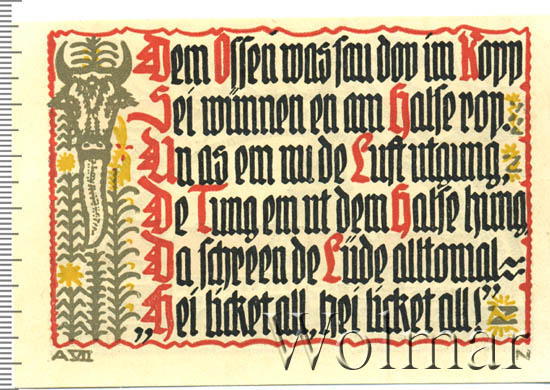 Dem Ossen was sau dov im Kopp
Sei wünnen en am Halse rop.
Un as em nu de Luft utgung,
De Tung em ut dem Halse hung,
Da schreen de Lüde alltomal
„Hei licket all, hei licket all!“
A VII
N
Wolmar